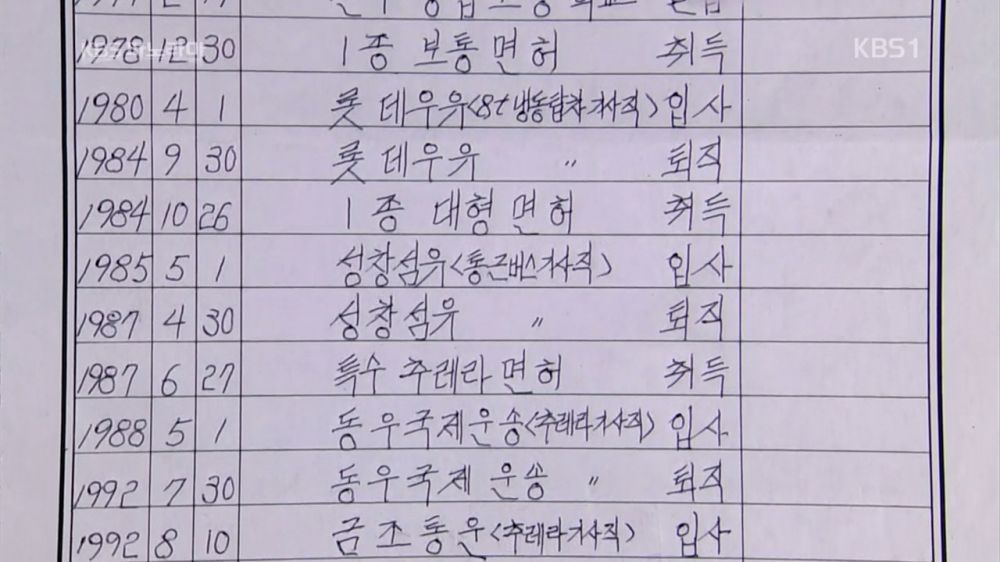 KBS1
1978 12 30 1종 보통면허 취득
1980 4 1 롯데우유<8t냉동탑차기사직> 입사
1984 9 30 롯데우유 〃 퇴직
1984 10 26 1종 대형면허 취득
1985 5 1 성창섬유<통근버스기사직> 입사
1987 4 30 성창섬유 〃 퇴직
1987 6 27 특수 추레라면허 취득
1988 5 1 동우국제운송<추레라기사직> 입사
1992 7 30 동우국제운송 〃 퇴직
1992 8 10 금조통운<추레라기사직> 입사